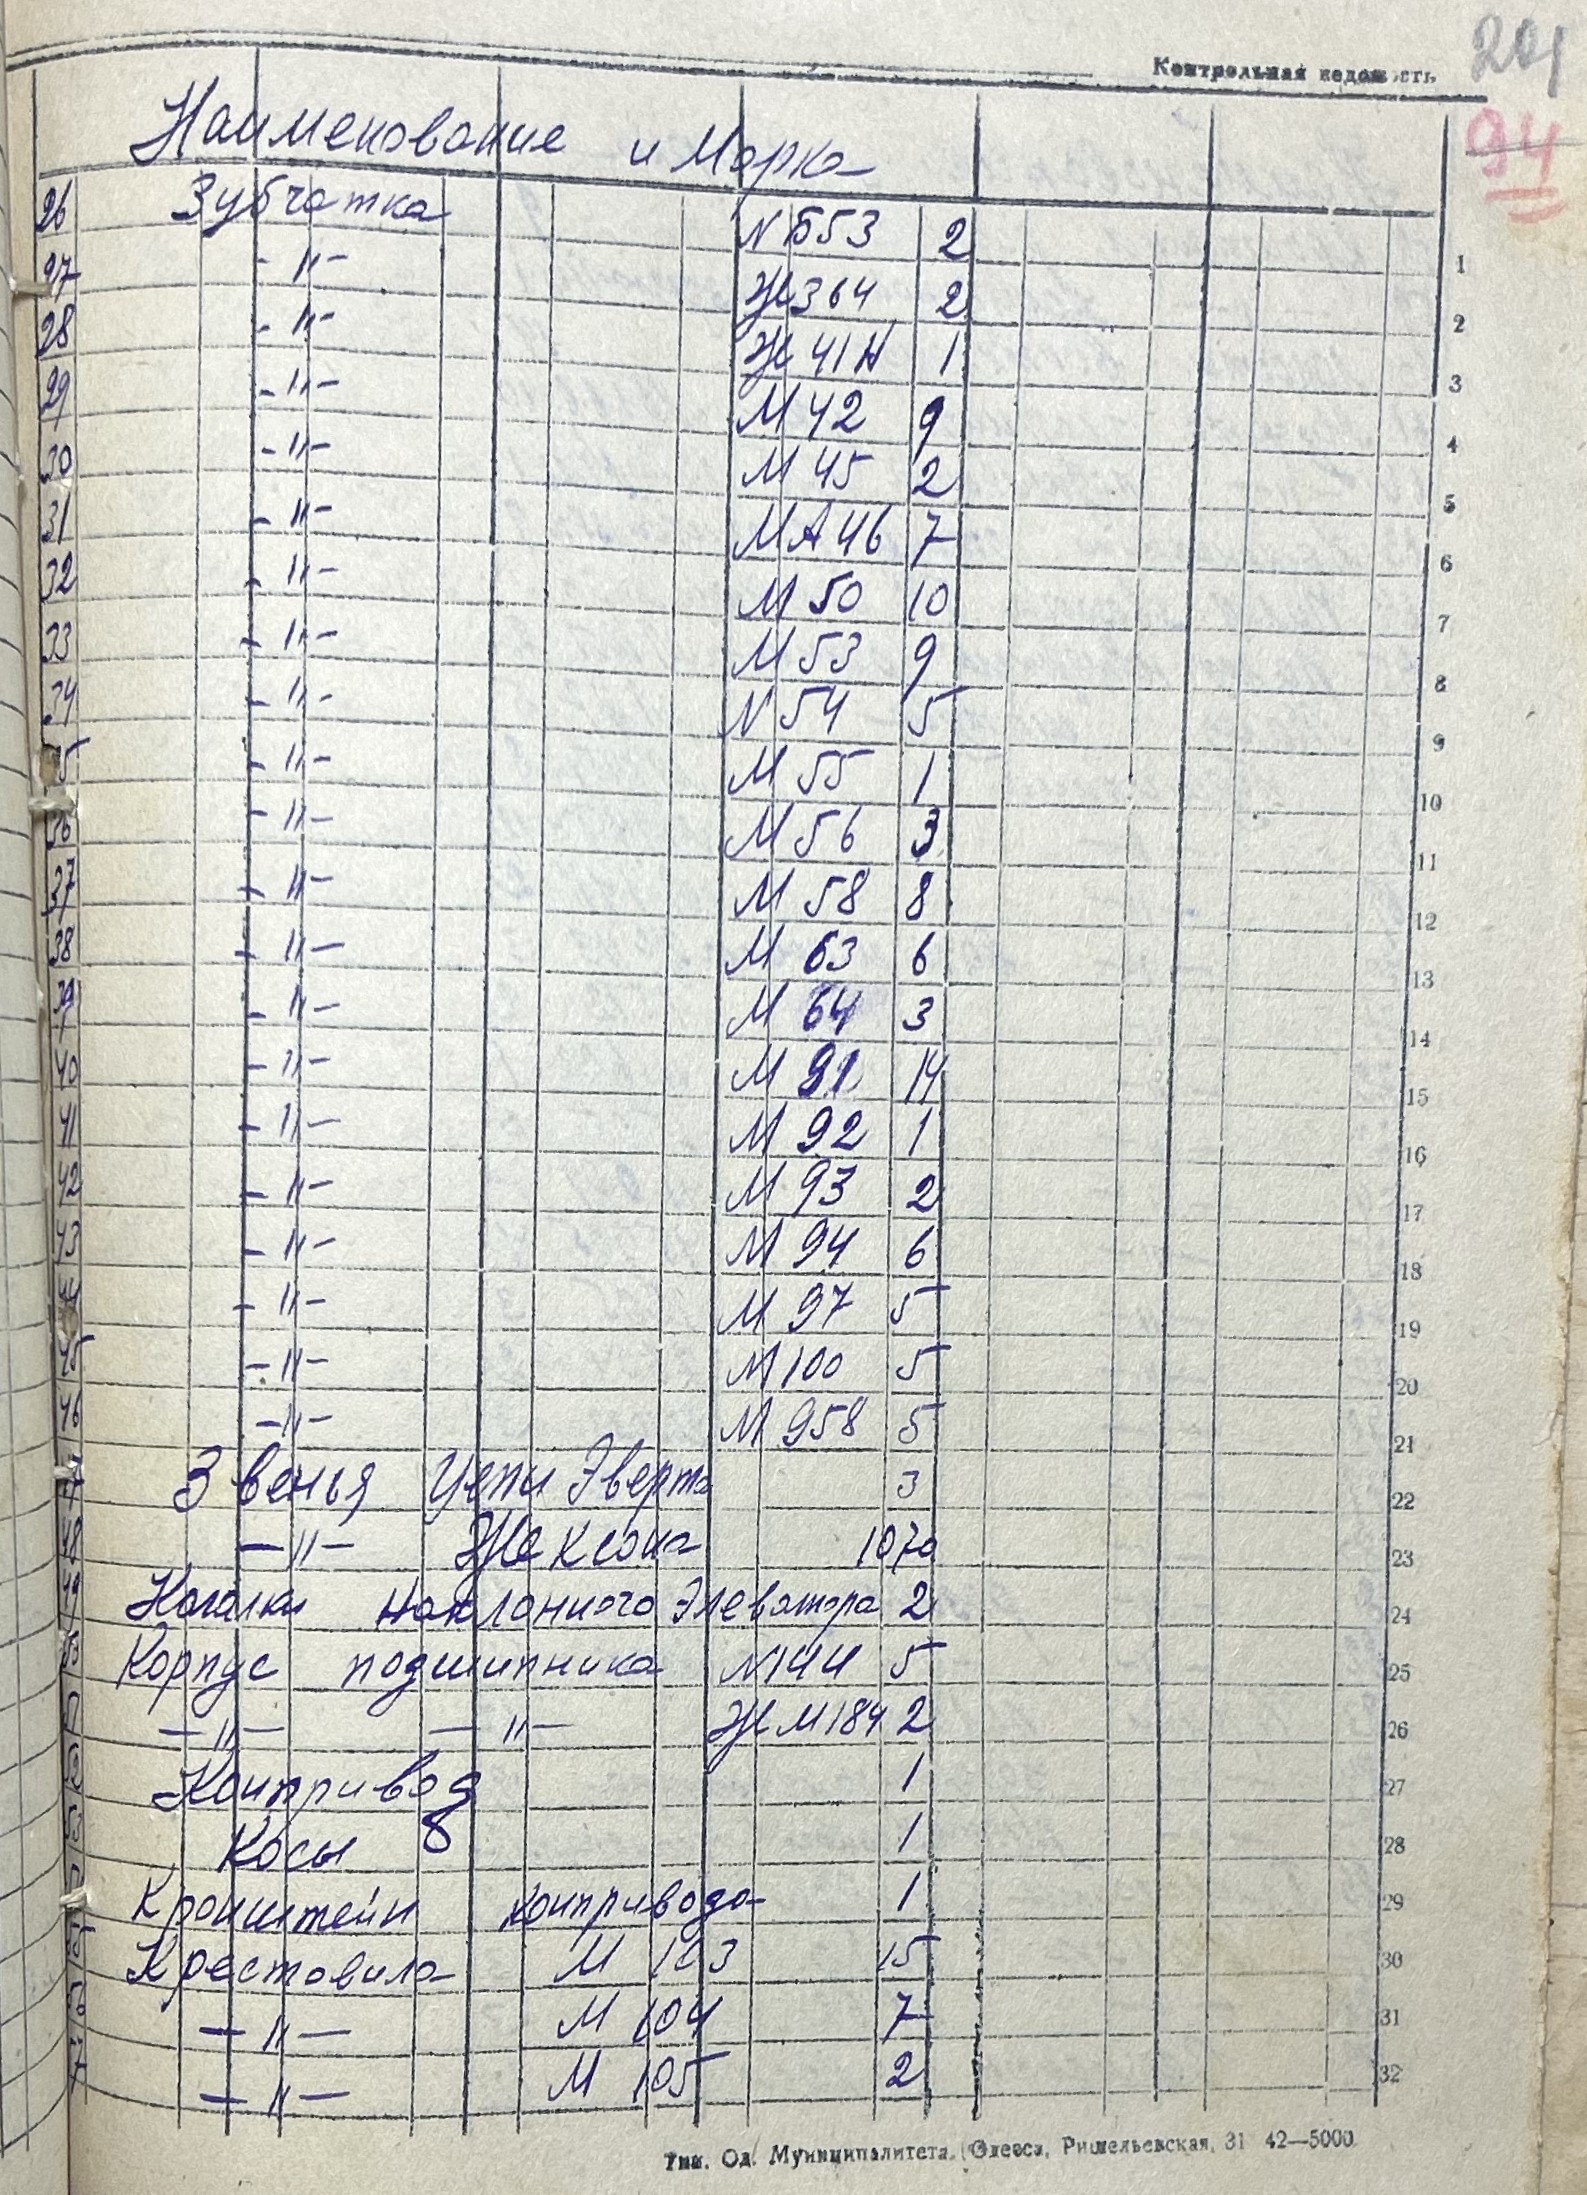 Контрольная ведомость
94
Наименование и Марка
26 Зубчатка N Б53 2 1
27 -"- Ж 364 2 2
28 -"- Ж 41Н 1 3
29 -"- М 42 9 4
30 -"- М 45 2 5
31 -"- МА 46 7 6
32 -"- М 50 10 7
33 -"- М 53 9 8
34 -"- N 54 5 9
5 -"- М 55 1 10
36 -"- М 56 3 11
37 -"- М 58 8 12
38 -"- М 63 6 13
39 -"- М 64 3 14
40 -"- М 91 14 15
41 -"- М 92 1 16
42 -"- М 93 2 17
43 -"- М 94 6 18
44 -"- М 97 5 19
45 -"- М 100 5 20
46 -"- М 958 5 21
Звенья цепи Эверта 3 22
48 -"- Жексона 1070 23
49 наклонного Элеватора 2 24
Корпус подшипника N144 5 25
-"- -"- Ж М184 2 26
Контрпривод 1 27
Косы 8 1 28
Кронштейн контрпривода 1 29
Крестовина М 103 15 30
-"- М 104 7 31
-"- М 105 2 32
Тип. Од. Муниципалитета, Одесса, Ришельевская, 31 42—5000